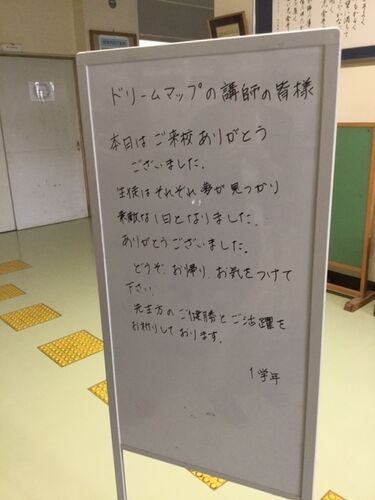 ドリームマップの講師の皆様
本日は ご来校 ありがとう
ございました。
生徒は それぞれ 夢が 見つかり
素敵な 1日と なりました。
ありがとうございました。
どうぞ、お帰り、お気をつけて
下さい
先生方の ご健勝と ご活躍を
お祈りして おります。
1学年